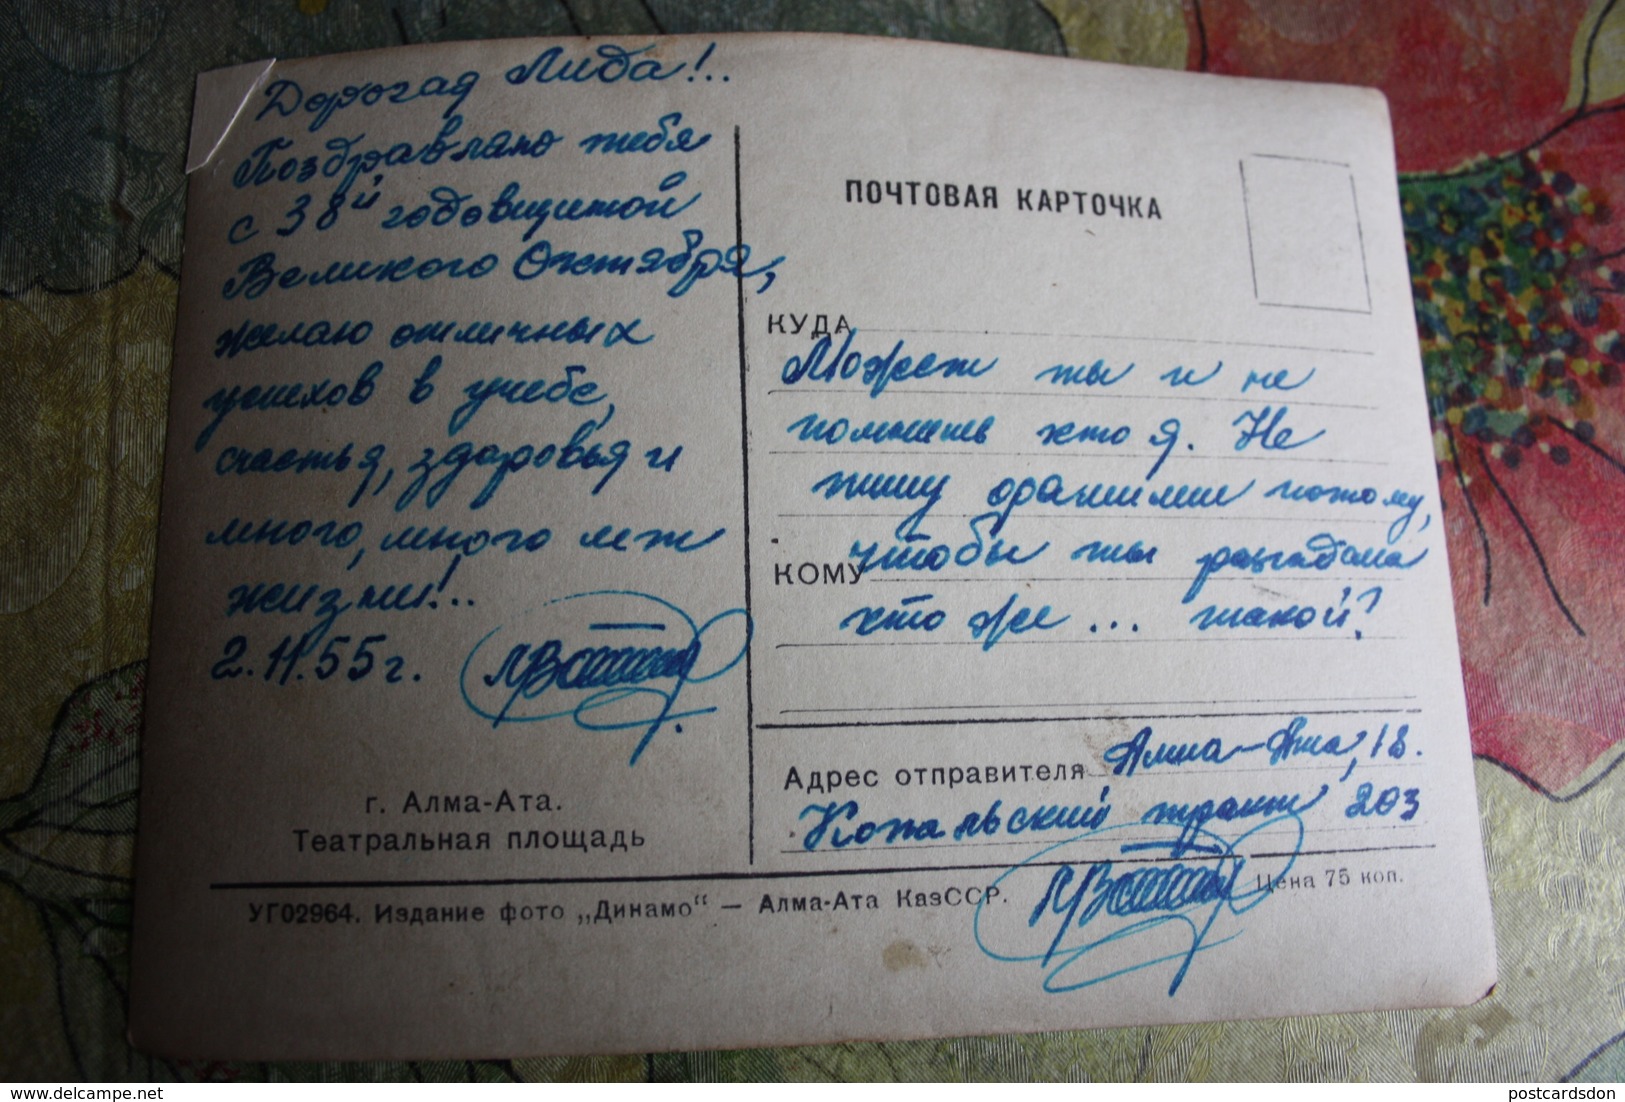 Дорогая Лида!..
Поздравляю тебя
с 38й годовщиной
Великого Октября,
желаю отличных
успехов в учебе,
счастья, здоровья и
много, много лет
жизни!..
2.11.55г.
г. Алма-Ата.
Театральная площадь
ПОЧТОВАЯ КАРТОЧКА
КУДА
Может ты и не
помнишь кто я. Не
пишу фамилии потому,
чтобы ты разгадала
КОМУ
кто же ... такой?
Адрес отправителя Алма-Ата, 18.
Копальский тракт 203
УГ02964. Издание фото „Динамо“ — Алма-Ата КазССР.
Цена 75 коп.
postcardsdon